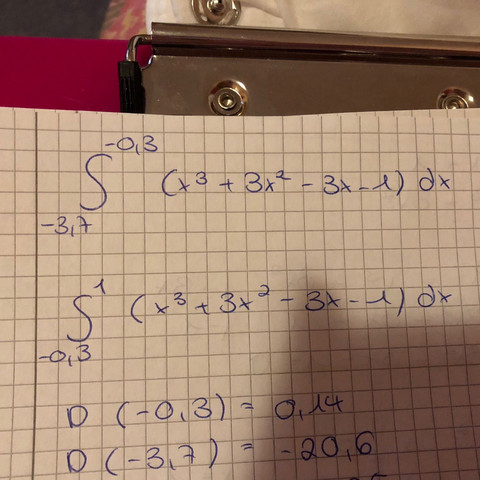 ∫_{-3,7}^{-0,3} (x³ + 3x² - 3x - 1) dx
∫_{-0,3}^{1} (x³ + 3x² - 3x - 1) dx
D (-0,3) = 0,14
D (-3,7) = -20,6